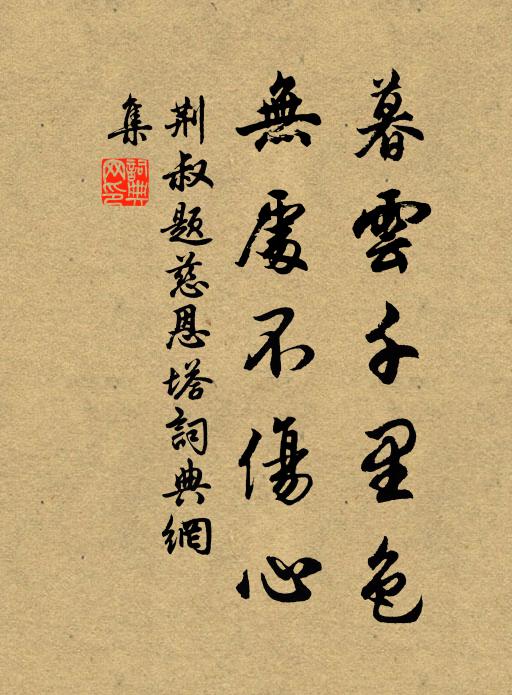 暮雲千里色
無處不傷心
荆叔題慈恩塔詞典網
集
詞典
网印